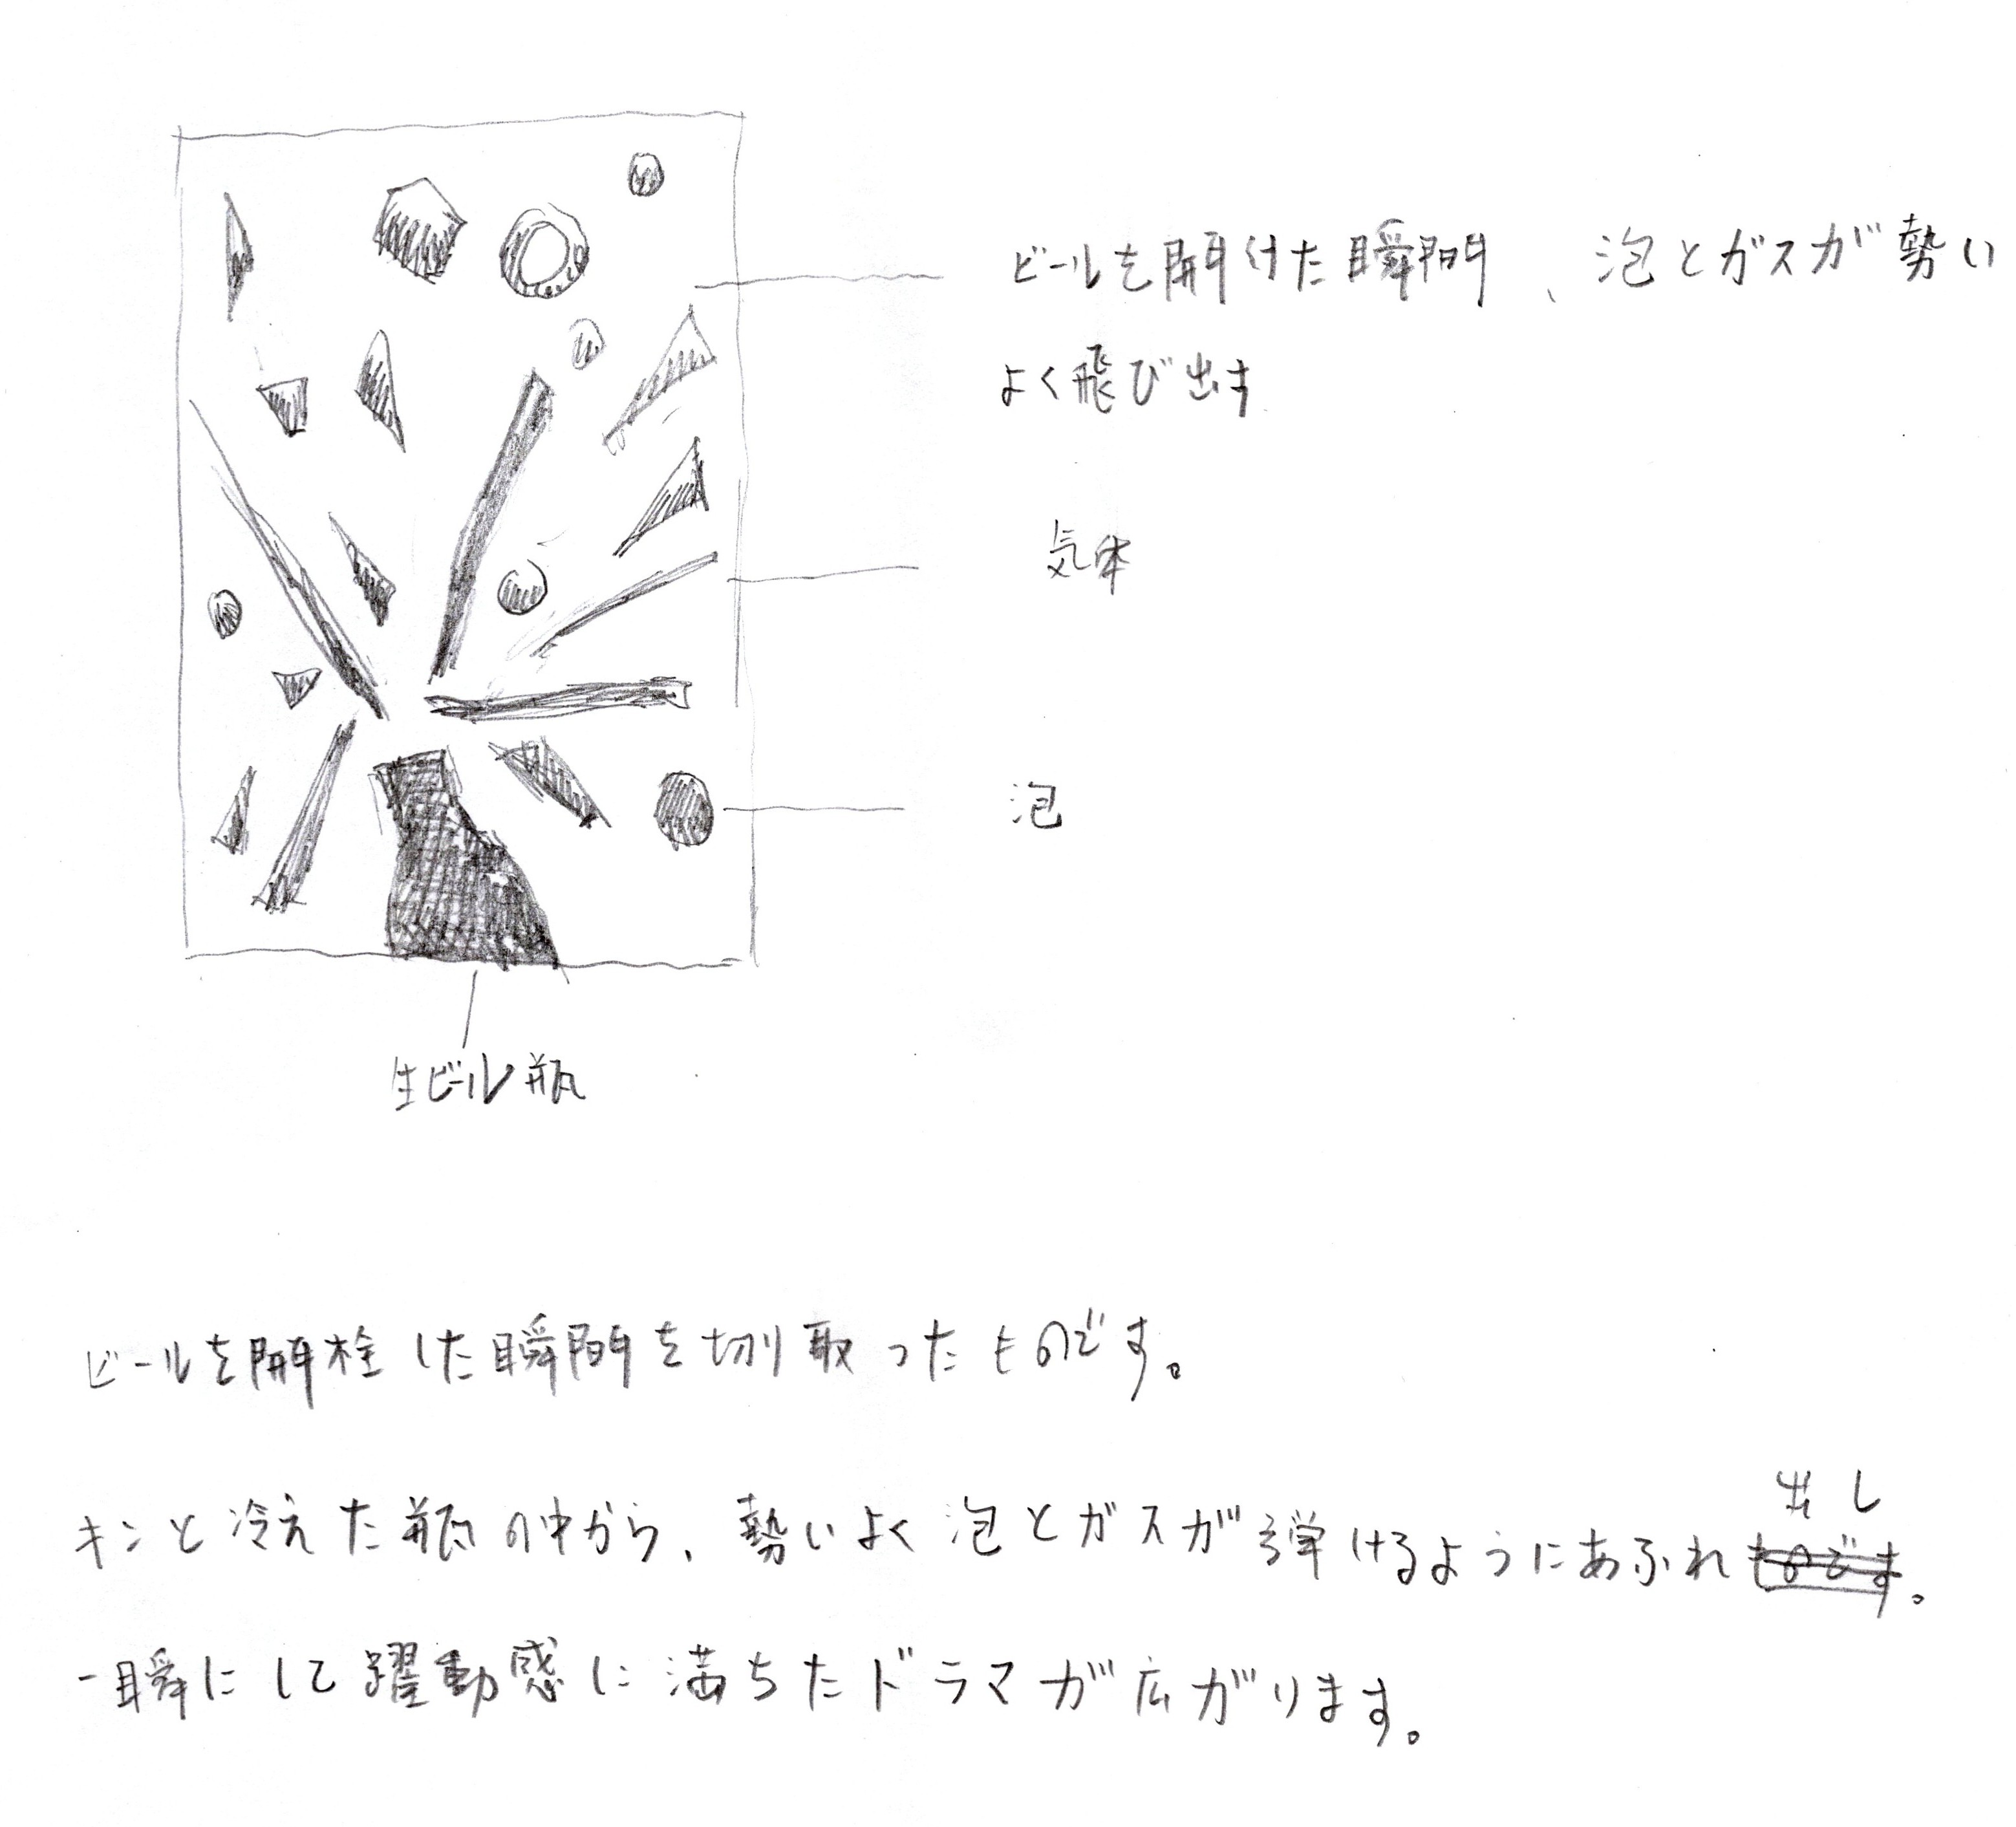 ビールを開けた瞬間、泡とガスが勢い
よく飛び出す
気体
泡
生ビール瓶
ビールを開栓した瞬間を切り取ったものです。
キンと冷えた瓶の中から、勢いよく泡とガスが弾けるようにあふれ出し。
一瞬にして躍動感に満ちたドラマが広がります。